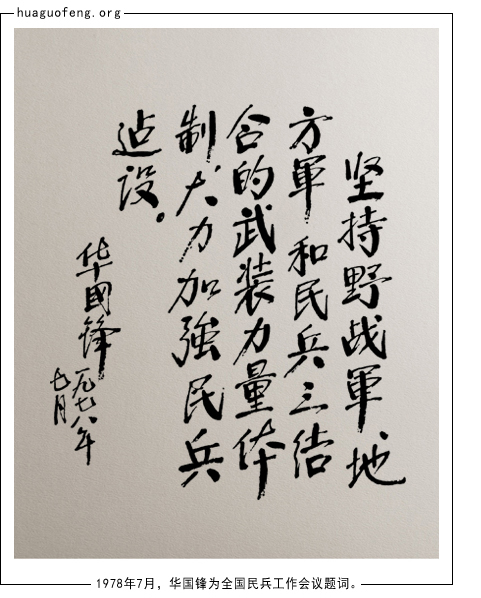 huaguofeng.org
坚持野战軍地
方軍和民兵三结
合的武装力量体
制大力加強民兵
迠设。
华國锋
一九七八年
七月
1978年7月，华国锋为全国民兵工作会议题词。